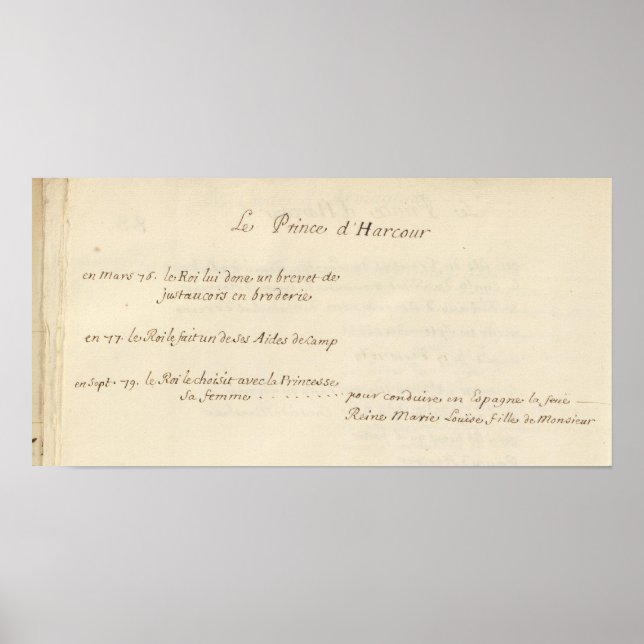 Le Prince d'Harcour
en Mars 76. le Roi lui done un brevet de
justaucors en broderie
en 77. le Roi le fait un de ses Aides de camp
en Sept. 79. le Roi le choisit avec la Princesse
sa femme . . . . . . . . pour conduire en Espagne la feüe
Reine Marie Loüise fille de Monsieur